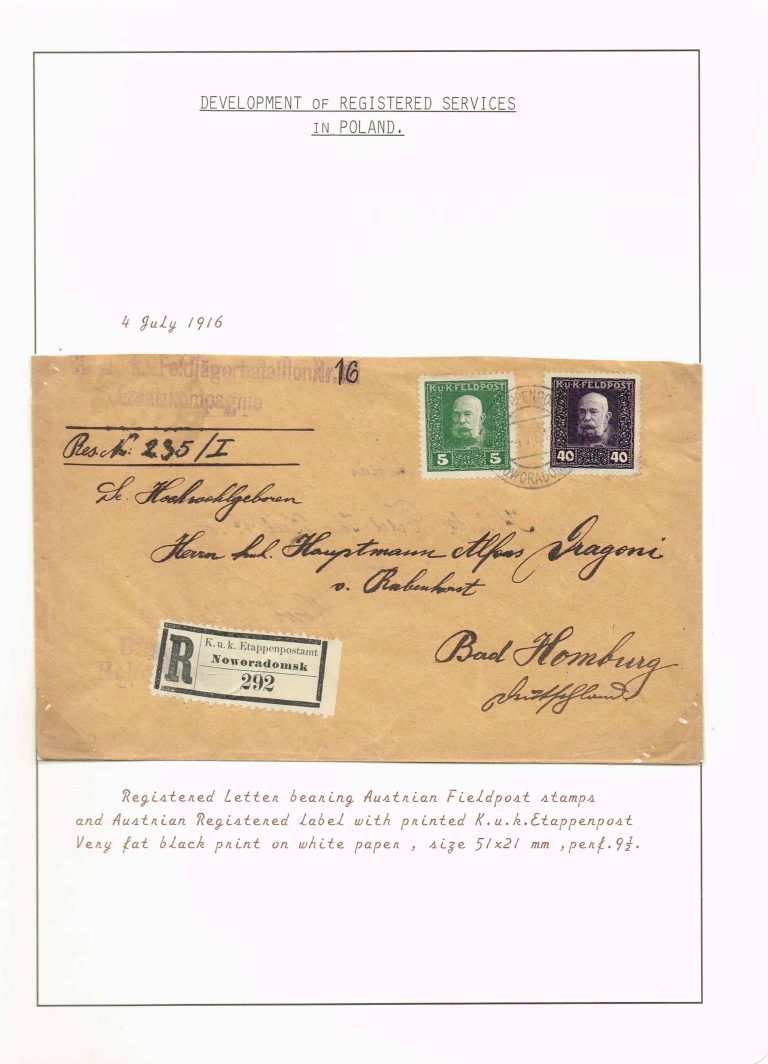 DEVELOPMENT OF REGISTERED SERVICES
IN POLAND.
4 July 1916
k. Feldjägerbataillon Nr. 16
Ersatzkompagnie
Res. No: 235/I
K.u.K.FELDPOST
5 5
K.u.K.FELDPOST
40 40
NOWORADOM
Sr. Hochwohlgeboren
Herrn k.u.k. Hauptmann Alfons Dragoni
v. Rabenhorst
R
K. u. k. Etappenpostamt
Noworadomsk
292
Bad Homburg
Deutschland
Registered Letter bearing Austrian Fieldpost stamps
and Austrian Registered label with printed K.u.k.Etappenpost
Very fat black print on white paper , size 51x21 mm ,perf.9½.